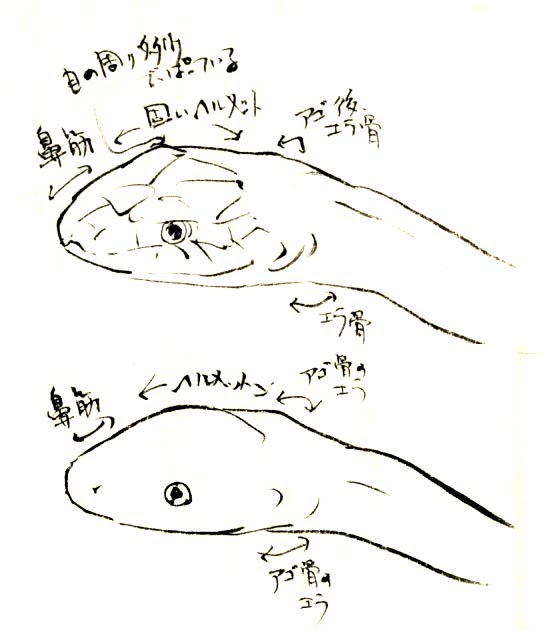 目の周り多少
でっぱっている
固いヘルメット
鼻筋
アゴ後
エラ骨
エラ骨
ヘルメット
アゴ骨の
エラ
鼻筋
アゴ骨の
エラ